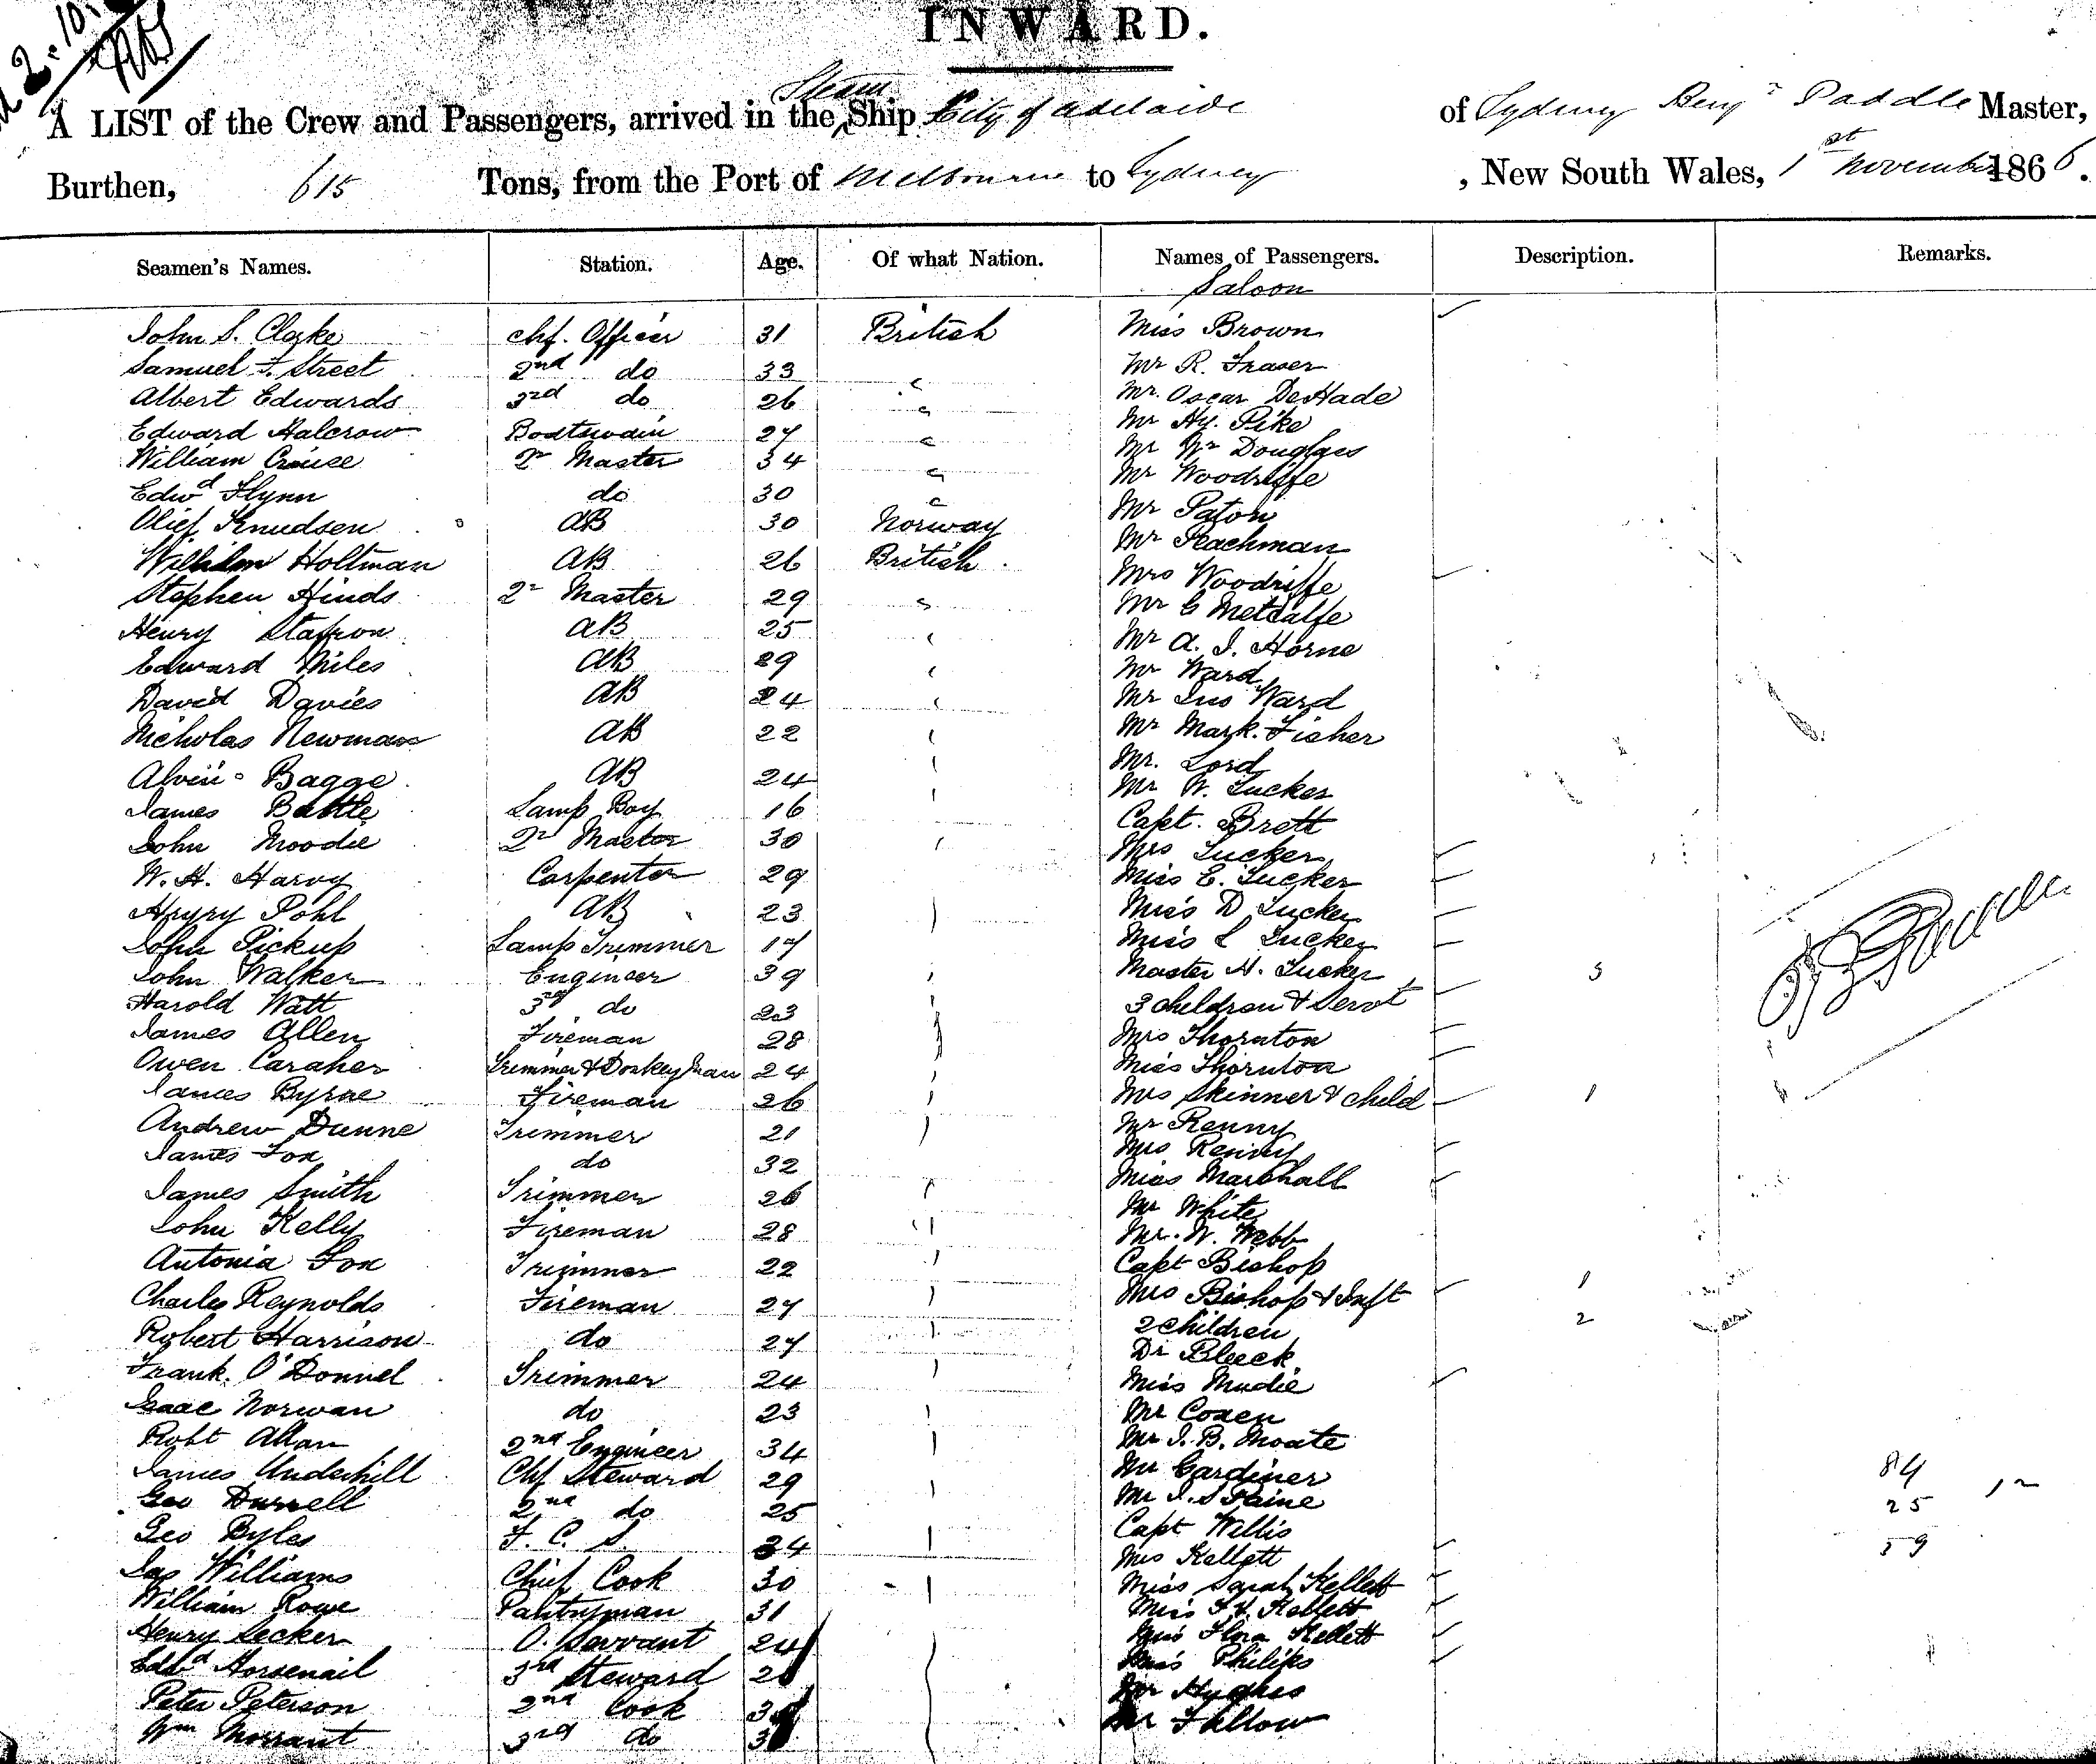 INWARD.
A LIST of the Crew and Passengers, arrived in the Steam Ship City of Adelaide of Sydney Benjn Paddle Master,
Burthen, 615 Tons, from the Port of Melbourne to Sydney , New South Wales, 1st November 1866.
Seamen's Names. Station. Age. Of what Nation. Names of Passengers. Description. Remarks.
Saloon
John S. Clarke chf. Officer 31 British Miss Brown
Samuel F. Street 2nd do 33 Mr R. Fraser
Albert Edwards 3rd do 26 Mr. Oscar DeHade
Edward Halcrow Boatswain 27 Mr Hy. Pike
William Cruise Qr Master 34 Mr Wm Douglass
Edwd Flynn do 30 Mr Woodriffe
Olief Knudsen AB 30 Norway Mr Paton
Holtman AB 26 British Mr Peachman
Stephen Hinds Qr Master 29 Mrs Woodriffe
Henry AB 25 Mr G Metcalfe
Edward Miles AB 29 Mr A. I. Horne
David Davies AB 24 Mr Ward
Nicholas Newman AB 22 Mr Jno Ward
Bagge AB 24 Mr Mark. Fisher
James Battle Lamp Boy 16 Mr. Lord
John Moodie Qr Master 30 Mr W. Tucker
W. H. Harvy Carpenter 29 Capt. Brett
Pohl AB 23 Mrs Tucker
John Pickup Lamp Trimmer 17 Miss E. Tucker
John Walker Engineer 39 Miss D Tucker
Harold Watt 3rd do 23 Miss L Tucker
James Allen Fireman 28 Master H. Tucker 3
Owen Caraher Trimmer & Donkeyman 24 3 children & Servt
James Byrne Fireman 26 Mrs Thornton
Andrew Dunne Trimmer 21 Miss Thornton
James Fox do 32 Mrs Skinner & child 1
James Smith Trimmer 26 Mr Renny
John Kelly Fireman 28 Mrs Renny
Antonia Fox Trimmer 22 Miss Marshall
Charles Reynolds Fireman 27 Mr White
Robert Harrison do 27 Mr. W. Webb
Frank. O'Donnel Trimmer 24 Capt Bishop
Isaac Norwan do 23 Mrs Bishop & Inft 1
Robt Allan 2nd Engineer 34 2 children 2
James Underhill Chf Steward 29 Dr Bleeck
Geo Durrell 2nd do 25 Miss Mudie
Geo Byles F. C. S. 34 Mr Coxen
Jas Williams Chief Cook 30 Mr J. B. Moate
William Rowe Pantryman 31 Mr Gardiner 84
Henry Secker O. Servant 24 Mr J. S Paine 25 12
Horsenail 3rd Steward Capt Willis
Peter Peterson 2nd Cook Mrs Kellett 59
Wm Morrant 3rd do Miss Sarah Kellett
Miss F. H. Kellett
Miss Flora Kellett
Miss Philips
Mr Hughes
Mr Fallow